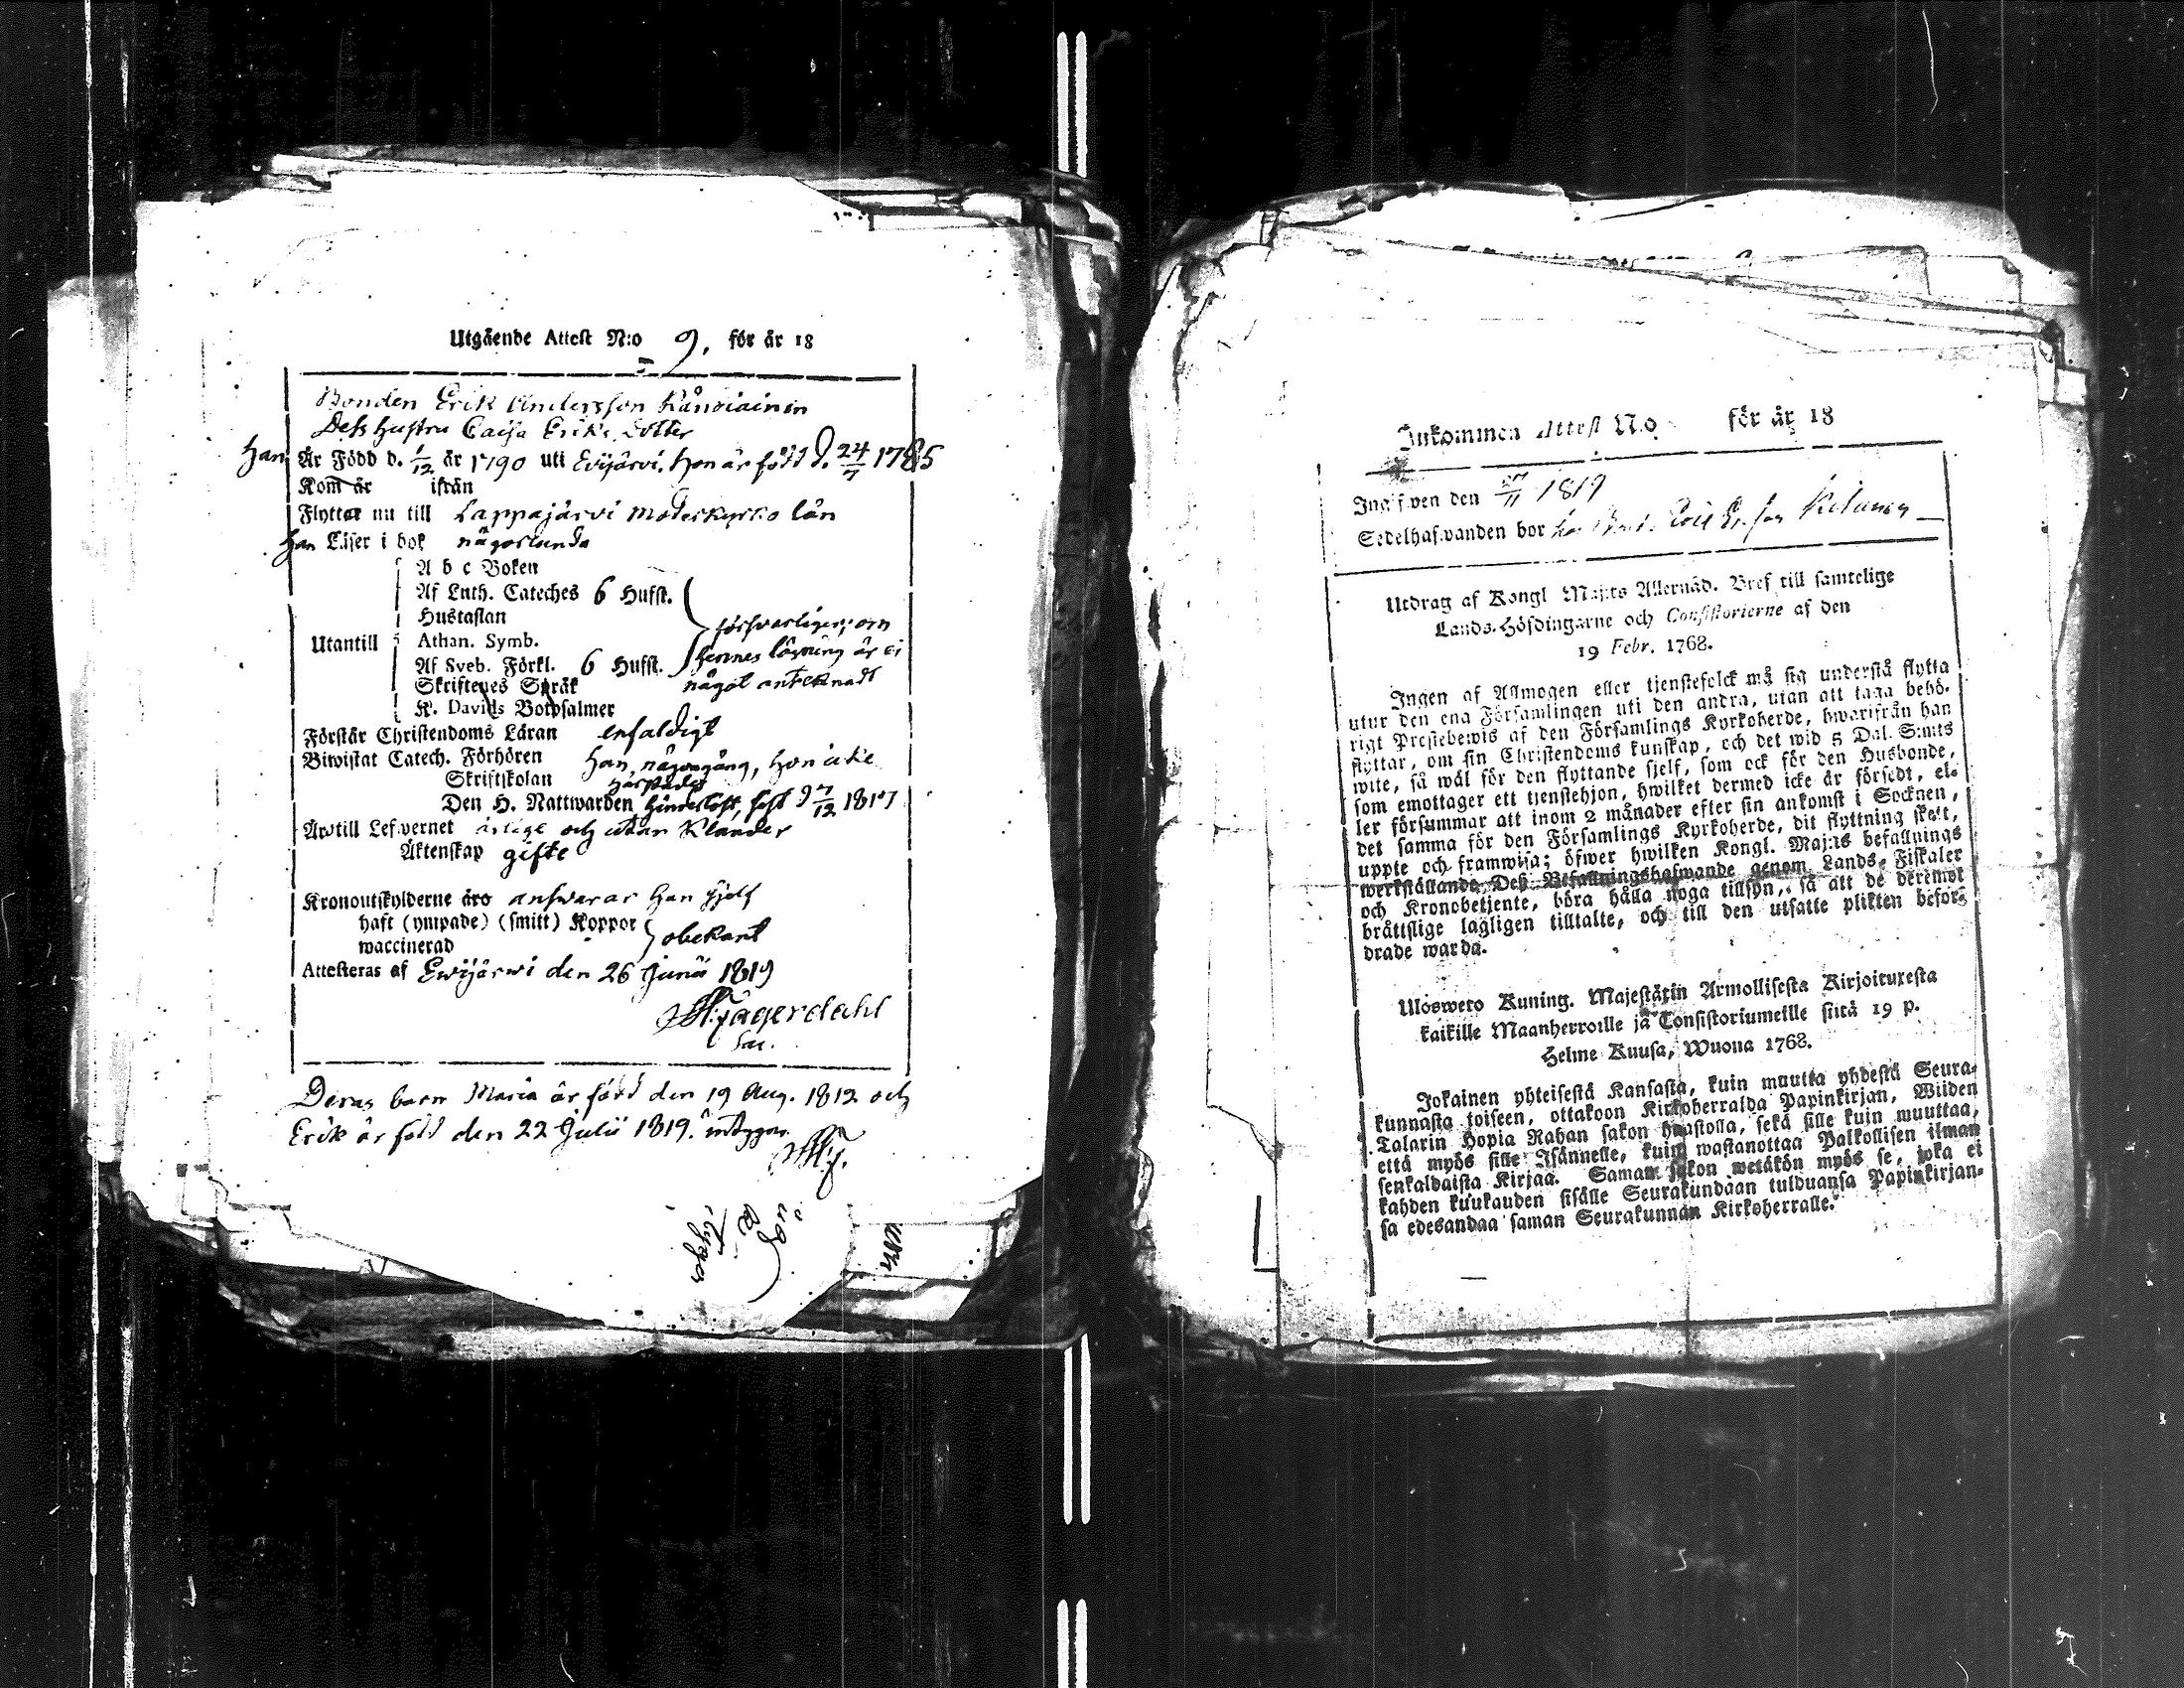 Utgående Attest N:o 9. för år 18
Bonden Erik Andersson Känsiäinen
Dess hustru Caisa Eriks dotter
Han Är Född d. 1/12 år 1790 uti Evijärvi. Hon är född d. 24/7 1785
Kom år ifrån
Flyttar nu till Lappajärvi moderkyrko lån
Han Läser i bok någorlunda
A b c Boken
Af Luth. Cateches 6 Hufst.
Hustaflan
Utantill Athan. Symb.
Af Sveb. Förkl. 6 Hufst.
Skriftenes Språk
K. Davids Botpsalmer
försvarligen; om
hennes läsning är ei
något antecknadt
Förstår Christendoms Läran enfaldigt
Biwistat Catech. Förhören han någongång, hon icke
Skriftskolan
Den H. Nattwarden sist d 7/12 1817
Är till Lefwernet ärlige och utan Klander
Äktenskap gifte
Kronoutskylderne äro answarar han sjelf
haft (ympade) (smitt) Koppor
waccinerad
obekant
Attesteras af Ewijärwi den 26 Junii 1819
Jägerdahl
Sac.
Deras barn Maria är född den 19 Aug. 1812 och
Erik är född den 22 Julii 1819. intygar
Inkommen Attest N:o för år 18
Ingifwen den /11 1819
Sedelhafwanden bor
Utdrag af Kongl Maj:ts Allernåd. Bref till samtelige
Lands-Höfdingarne och Consistorierne af den
19 Febr. 1768.
Ingen af Allmogen eller tjenstefolck må sig understå flytta
utur den ena Församlingen uti den andra, utan att taga behö-
rigt Prestebewis af den Församlings Kyrkoherde, hwarifrån han
flyttar, om sin Christendoms kunskap, och det wid 5 Dal. S:mts
wite, så wäl för den flyttande sjelf, som ock för den Husbonde,
som emottager ett tjenstehjon, hwilket dermed icke är försedt, el-
ler försummar att inom 2 månader efter sin ankomst i Socknen,
det samma för den Församlings Kyrkoherde, dit flyttning skett,
uppte och framwisa; öfwer hwilken Kongl. Maj:ts befallnings
werkställande Deß Befallningshafwande genom Lands-Fiskaler
och Kronobetjente, böra hålla noga tillsyn, så att de deremot
bråttslige lagligen tilltalte, och till den utsatte plikten befor-
drade warda.
Ulosweto Kuning. Majestätin Armollisesta Kirjoituxesta
kaikille Maanherroille ja Consistoriumeille siitä 19 p.
Helme Kuusa, Wuona 1768.
Jokainen yhteisestä Kansasta, kuin muutta yhdestä Seura-
kunnasta toiseen, ottakoon Kirkoherralda Papinkirjan, Wiiden
Talarin Hopia Rahan sakon haastolla, sekä sille kuin muuttaa,
että myös sille Isännelle, kuin wastanottaa Palkollisen ilman
senkaldaista Kirjaa. Saman sakon wetäkön myös se, joka ei
kahden kuukauden sisälle Seurakundaan tulduansa Papinkirjan-
sa edesandaa saman Seurakunnan Kirkoherralle.